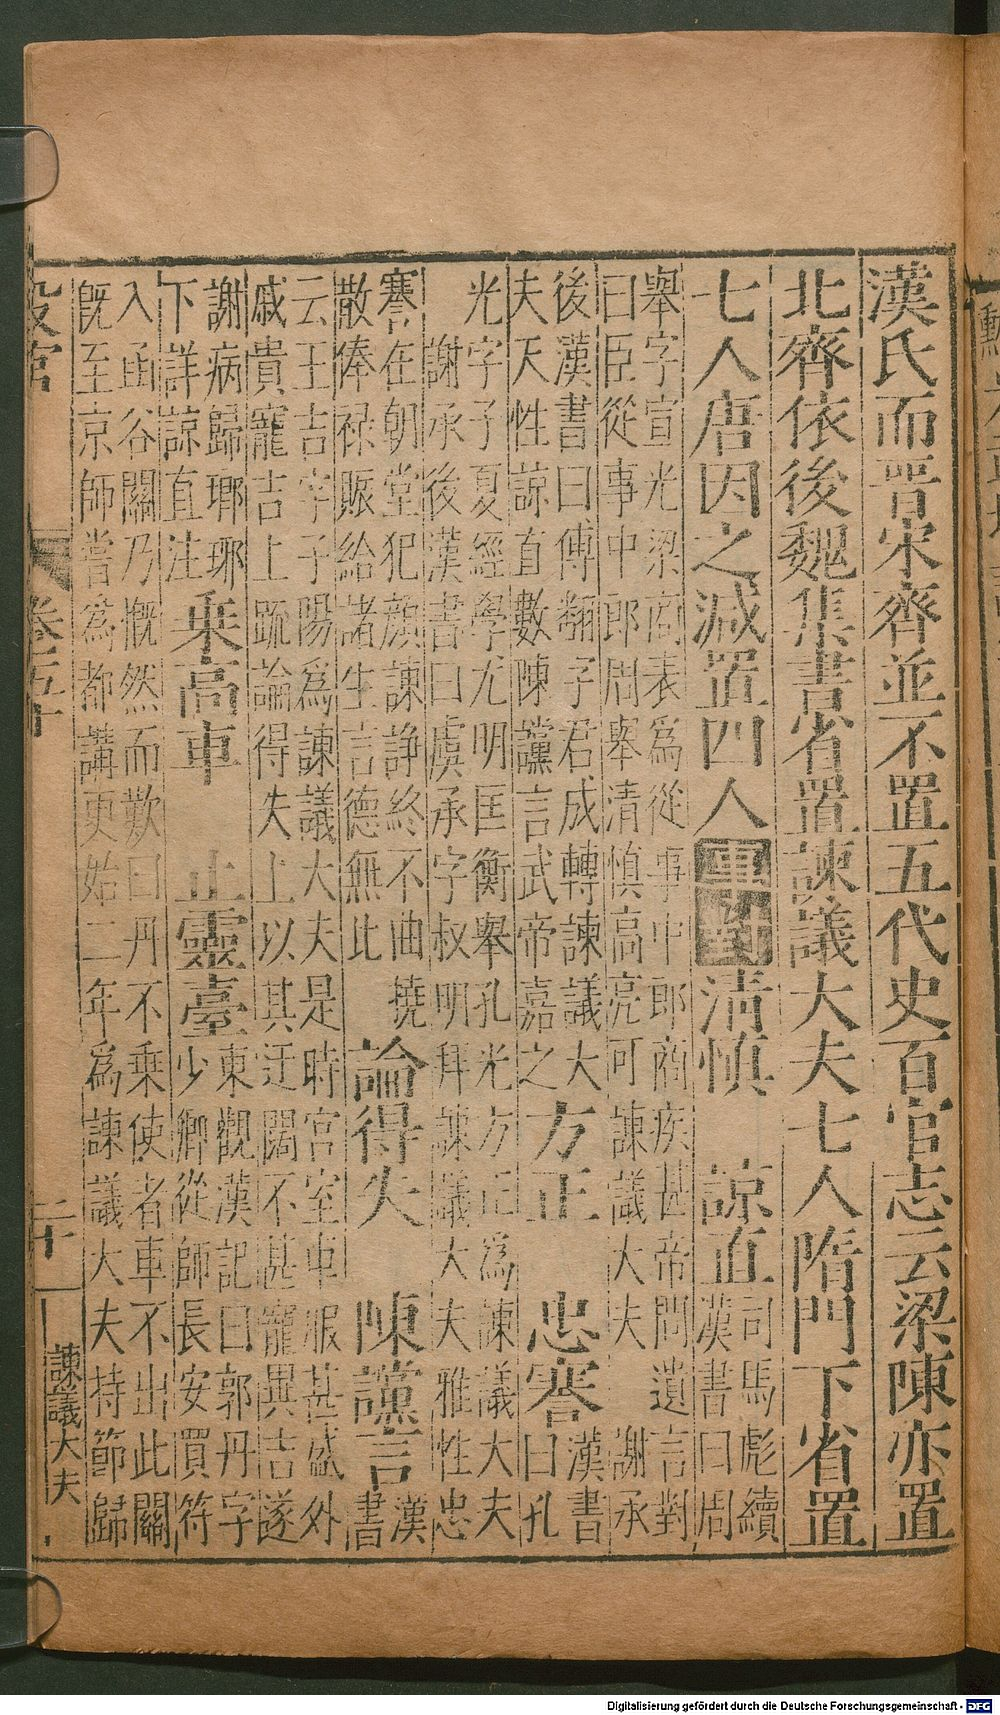 漢氏而晉宋齊並不置五代史百官志云梁陳亦置
北齊依後魏集書省置諫議大夫七人隋門下省置
七人唐因之減置四人事對清慎 諒直司馬彪續
漢書曰周
舉字宣光梁商表為從事中郎商疾甚帝問遺言對
曰臣從事中郎周舉清慎高亮可諫議大夫 謝承
後漢書曰傅翻子君成轉諫議大
夫天性諒直數陳讜言武帝嘉之
方正 忠謇漢書
曰孔
光字子夏經學尤明匡衡舉孔光方正為諫議大夫
謝承後漢書曰虞承字叔明拜諫議大夫雅性忠
謇在朝堂犯顏諫諍終不曲撓
散俸祿賑給諸生言德無此
論得失 陳讜言漢
書
云王吉字子陽為諫議大夫是時宮室車服甚盛外
戚貴寵吉上疏論得失上以其迂闊不甚寵異吉遂
謝病歸瑯琊
下詳諒直注
乘高車 止靈臺東觀漢記曰郭丹字
少卿從師長安買符
入函谷關乃慨然而歎曰丹不乘使者車不出此關
既至京師嘗為都講更始二年為諫議大夫持節歸
設官 卷五十 二十 諫議大夫
Digitalisierung gefördert durch die Deutsche Forschungsgemeinschaft - DFG